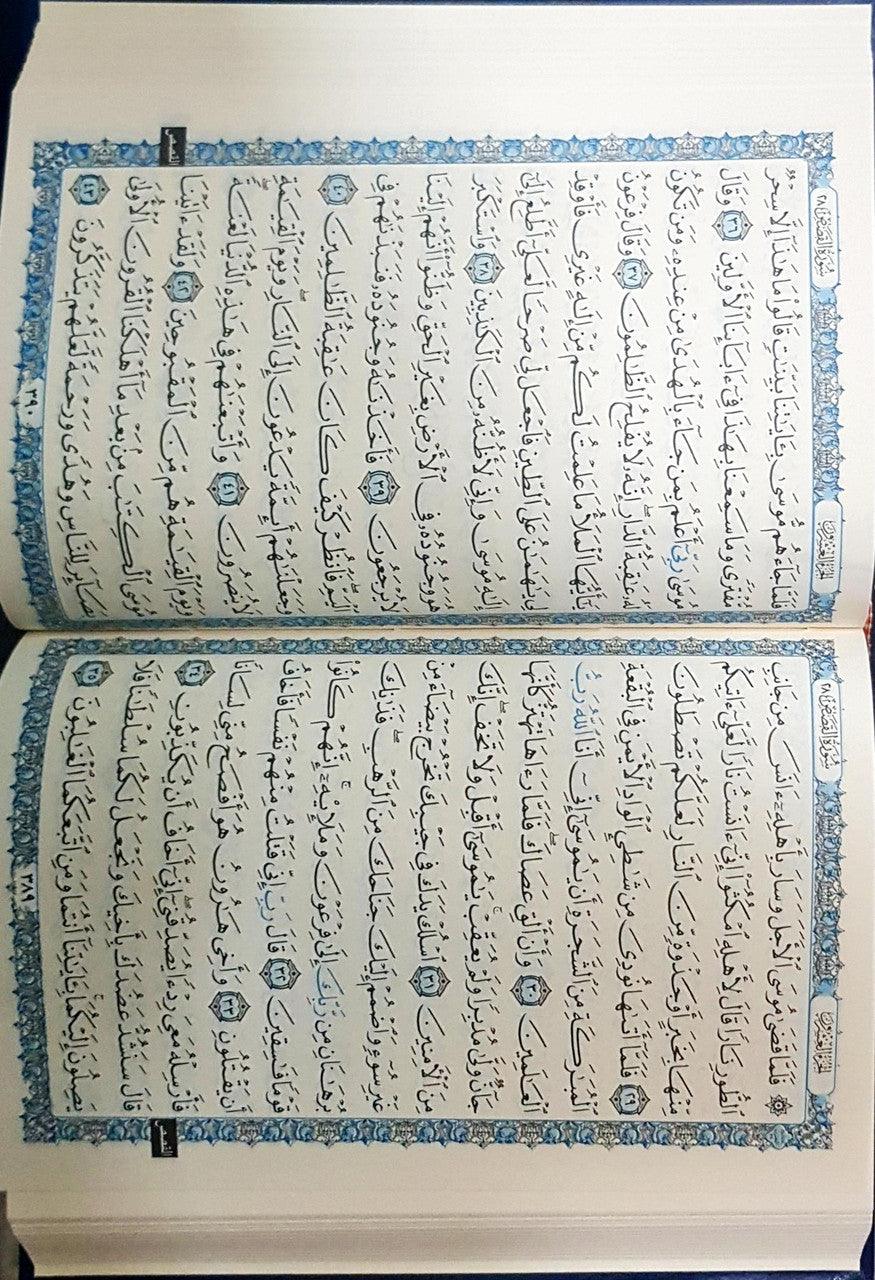 سُورَةُ القَصَصِ ٢٨
الجُزْءُ العِشْرُونَ
۞ فَلَمَّا قَضَىٰ مُوسَى ٱلْأَجَلَ وَسَارَ بِأَهْلِهِۦٓ ءَانَسَ مِن جَانِبِ
ٱلطُّورِ نَارًا قَالَ لِأَهْلِهِ ٱمْكُثُوٓا۟ إِنِّىٓ ءَانَسْتُ نَارًا لَّعَلِّىٓ ءَاتِيكُم
مِّنْهَا بِخَبَرٍ أَوْ جَذْوَةٍ مِّنَ ٱلنَّارِ لَعَلَّكُمْ تَصْطَلُونَ
﴿٢٩﴾ فَلَمَّآ أَتَىٰهَا نُودِىَ مِن شَٰطِئِ ٱلْوَادِ ٱلْأَيْمَنِ فِى ٱلْبُقْعَةِ
ٱلْمُبَٰرَكَةِ مِنَ ٱلشَّجَرَةِ أَن يَٰمُوسَىٰٓ إِنِّىٓ أَنَا ٱللَّهُ رَبُّ
ٱلْعَٰلَمِينَ ﴿٣٠﴾ وَأَنْ أَلْقِ عَصَاكَ ۖ فَلَمَّا رَءَاهَا تَهْتَزُّ كَأَنَّهَا
جَآنٌّ وَلَّىٰ مُدْبِرًا وَلَمْ يُعَقِّبْ ۚ يَٰمُوسَىٰٓ أَقْبِلْ وَلَا تَخَفْ ۖ إِنَّكَ
مِنَ ٱلْءَامِنِينَ ﴿٣١﴾ ٱسْلُكْ يَدَكَ فِى جَيْبِكَ تَخْرُجْ بَيْضَآءَ مِنْ
غَيْرِ سُوٓءٍ وَٱضْمُمْ إِلَيْكَ جَنَاحَكَ مِنَ ٱلرَّهْبِ ۖ فَذَٰنِكَ
بُرْهَٰنَانِ مِن رَّبِّكَ إِلَىٰ فِرْعَوْنَ وَمَلَإِي۟هِۦٓ ۚ إِنَّهُمْ كَانُوا۟
قَوْمًا فَٰسِقِينَ ﴿٣٢﴾ قَالَ رَبِّ إِنِّى قَتَلْتُ مِنْهُمْ نَفْسًا فَأَخَافُ
أَن يَقْتُلُونِ ﴿٣٣﴾ وَأَخِى هَٰرُونُ هُوَ أَفْصَحُ مِنِّى لِسَانًا
فَأَرْسِلْهُ مَعِىَ رِدْءًا يُصَدِّقُنِىٓ ۖ إِنِّىٓ أَخَافُ أَن يُكَذِّبُونِ ﴿٣٤﴾
قَالَ سَنَشُدُّ عَضُدَكَ بِأَخِيكَ وَنَجْعَلُ لَكُمَا سُلْطَٰنًا فَلَا
يَصِلُونَ إِلَيْكُمَا ۚ بِـَٔايَٰتِنَآ أَنتُمَا وَمَنِ ٱتَّبَعَكُمَا ٱلْغَٰلِبُونَ ﴿٣٥﴾
القصص
٣٨٩
سُورَةُ القَصَصِ ٢٨
الجُزْءُ العِشْرُونَ
فَلَمَّا جَآءَهُم مُّوسَىٰ بِـَٔايَٰتِنَا بَيِّنَٰتٍ قَالُوا۟ مَا هَٰذَآ إِلَّا سِحْرٌ
مُّفْتَرًى وَمَا سَمِعْنَا بِهَٰذَا فِىٓ ءَابَآئِنَا ٱلْأَوَّلِينَ ﴿٣٦﴾ وَقَالَ
مُوسَىٰ رَبِّىٓ أَعْلَمُ بِمَن جَآءَ بِٱلْهُدَىٰ مِنْ عِندِهِۦ وَمَن تَكُونُ
لَهُۥ عَٰقِبَةُ ٱلدَّارِ ۖ إِنَّهُۥ لَا يُفْلِحُ ٱلظَّٰلِمُونَ ﴿٣٧﴾ وَقَالَ فِرْعَوْنُ
يَٰٓأَيُّهَا ٱلْمَلَأُ مَا عَلِمْتُ لَكُم مِّنْ إِلَٰهٍ غَيْرِى فَأَوْقِدْ
لِى يَٰهَٰمَٰنُ عَلَى ٱلطِّينِ فَٱجْعَل لِّى صَرْحًا لَّعَلِّىٓ أَطَّلِعُ إِلَىٰٓ
إِلَٰهِ مُوسَىٰ وَإِنِّى لَأَظُنُّهُۥ مِنَ ٱلْكَٰذِبِينَ ﴿٣٨﴾ وَٱسْتَكْبَرَ
هُوَ وَجُنُودُهُۥ فِى ٱلْأَرْضِ بِغَيْرِ ٱلْحَقِّ وَظَنُّوٓا۟ أَنَّهُمْ إِلَيْنَا
لَا يُرْجَعُونَ ﴿٣٩﴾ فَأَخَذْنَٰهُ وَجُنُودَهُۥ فَنَبَذْنَٰهُمْ فِى
ٱلْيَمِّ ۖ فَٱنظُرْ كَيْفَ كَانَ عَٰقِبَةُ ٱلظَّٰلِمِينَ ﴿٤٠﴾
وَجَعَلْنَٰهُمْ أَئِمَّةً يَدْعُونَ إِلَى ٱلنَّارِ ۖ وَيَوْمَ ٱلْقِيَٰمَةِ
لَا يُنصَرُونَ ﴿٤١﴾ وَأَتْبَعْنَٰهُمْ فِى هَٰذِهِ ٱلدُّنْيَا لَعْنَةً ۖ
وَيَوْمَ ٱلْقِيَٰمَةِ هُم مِّنَ ٱلْمَقْبُوحِينَ ﴿٤٢﴾ وَلَقَدْ ءَاتَيْنَا
مُوسَى ٱلْكِتَٰبَ مِنۢ بَعْدِ مَآ أَهْلَكْنَا ٱلْقُرُونَ ٱلْأُولَىٰ
بَصَآئِرَ لِلنَّاسِ وَهُدًى وَرَحْمَةً لَّعَلَّهُمْ يَتَذَكَّرُونَ ﴿٤٣﴾
القصص
٣٩٠